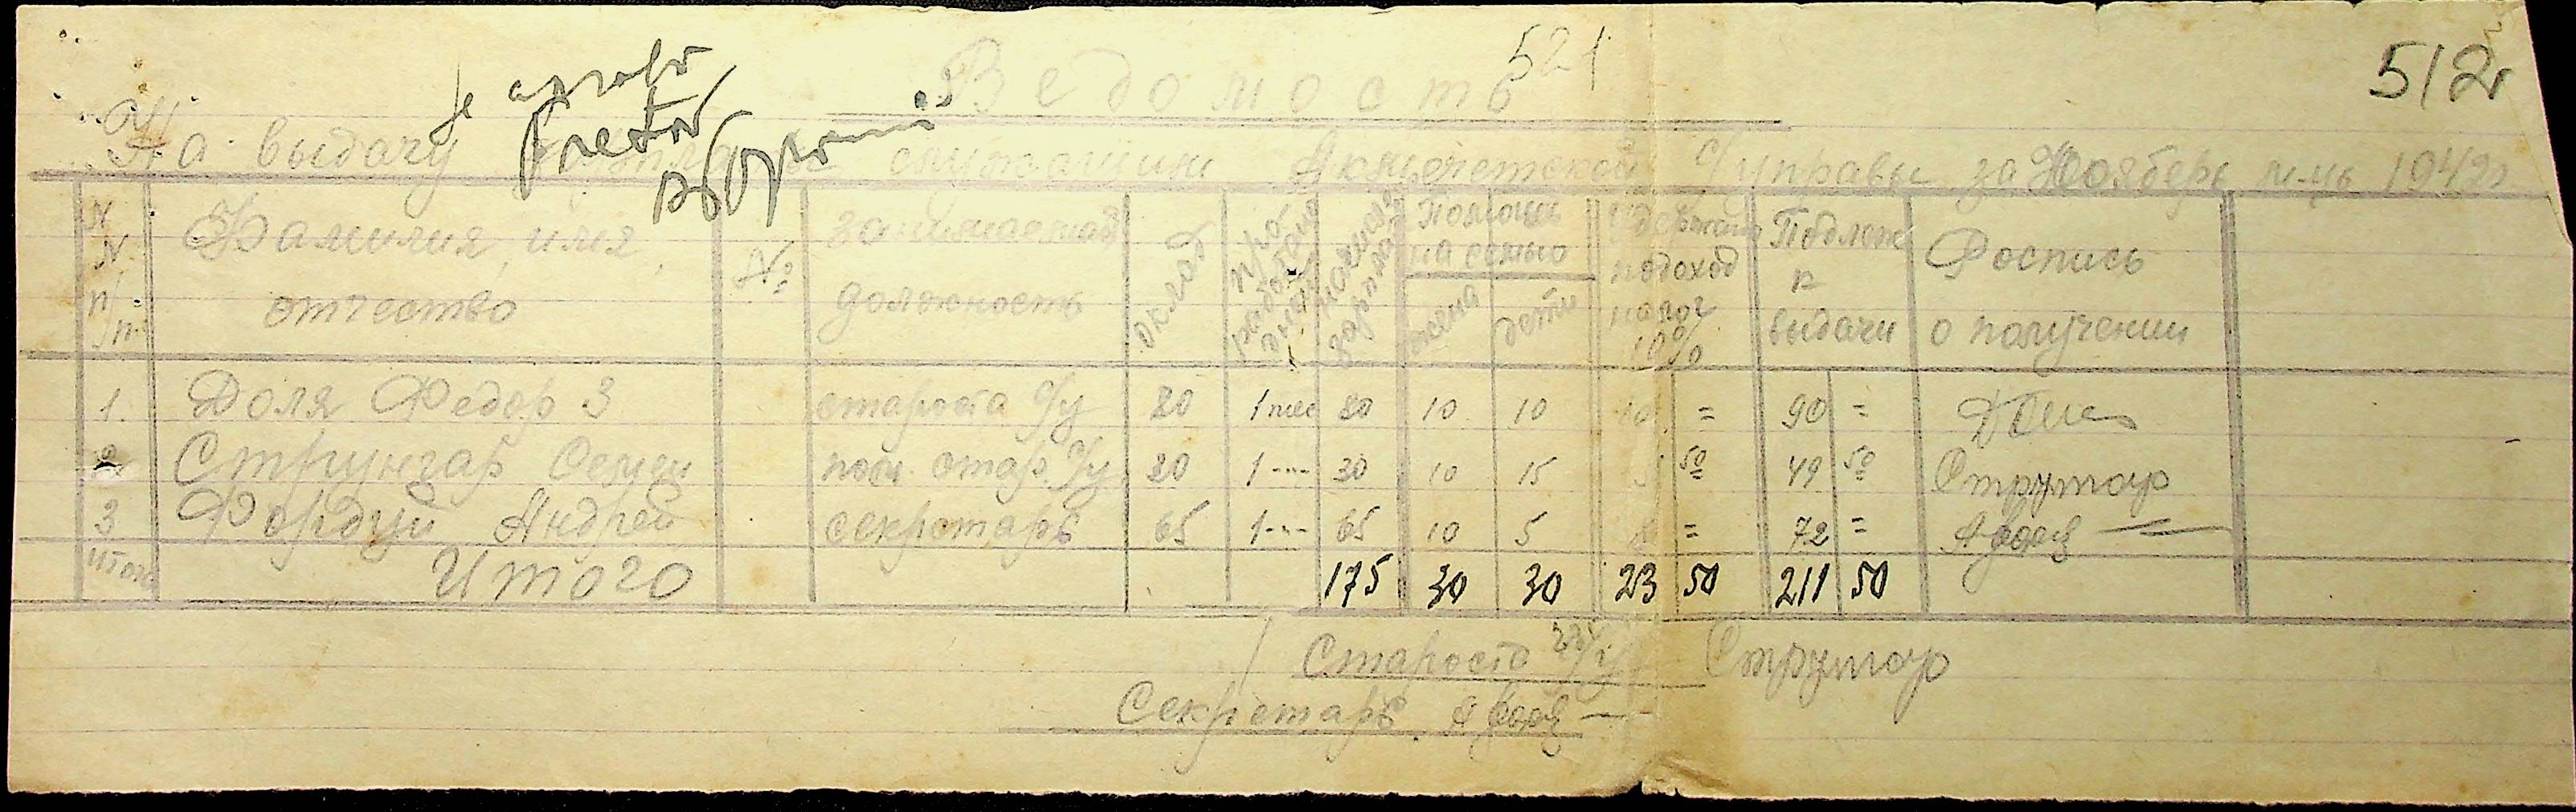 521
512
Se aprobă
Pretor
Ведомость
На выдачу служащим с/управы за Ноябрь м-ць 1942г
N N п/п.
Фамилия, имя, отчество
№
занимаемая должность
оклад
проработано дней
зарплата
Помощь на семью
жена
дети
подоход налог 10%
Подлеж к выдачи
Роспись о получении
1. Доля Федор З староста с/у 80 1 мес 80 10 10 10 = 90 = Доля
2. Струнгар Семен пом. стар. с/у 30 1 --- 30 10 15 5 50 49 50 Струнгар
3 Фордуй Андрей секретарь 65 1 --- 65 10 5 8 = 72 =
Итого Итого 175 30 30 23 50 211 50
Староста Струнгар
Секретарь